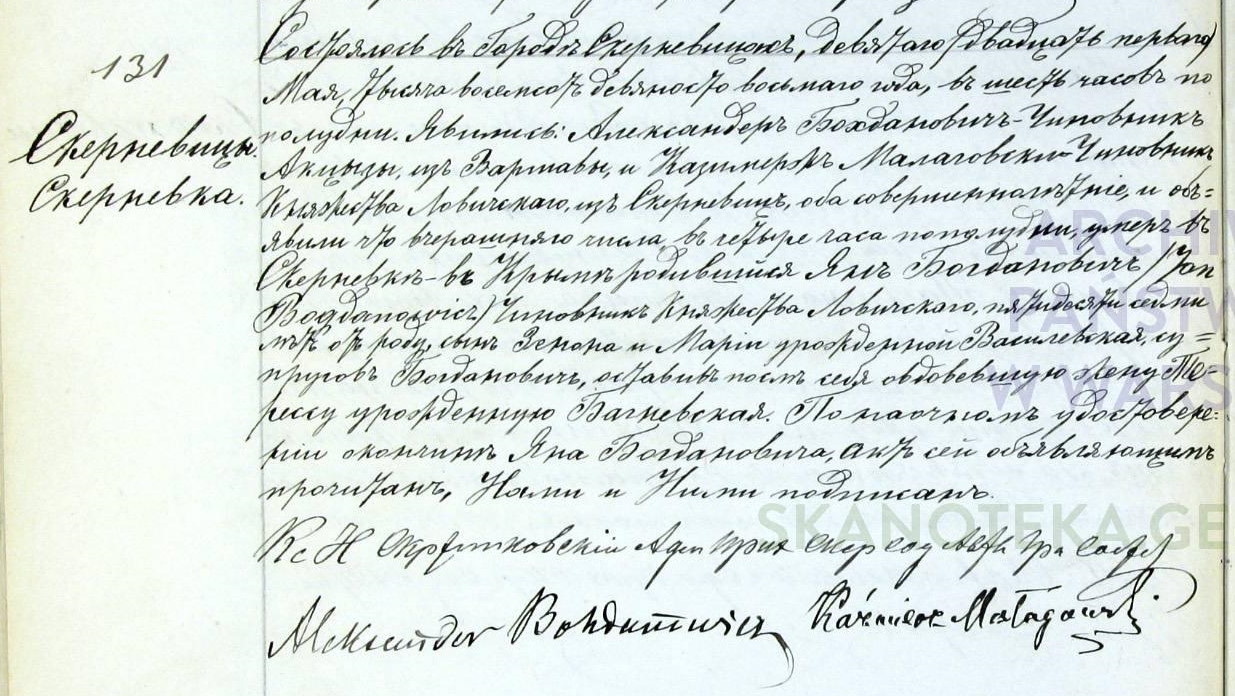 131
Скерневицы.
Скерневка.
Состоялось въ Городѣ Скерневицахъ, девятаго (двадцать перваго)
Мая, тысяча восемсотъ девяносто восьмаго года, въ шесть часовъ по
полудни. Явились: Александеръ Бохдановичъ - Чиновникъ
Акцызы, изъ Варшавы, и Казимержъ Малаговскій - Чиновникъ
Княжества Ловичскаго, изъ Скерневицъ, оба совершеннолѣтніе, и объ=
явили что вчерашняго числа, въ четыре часа пополудни, умеръ въ
Скерневкѣ - въ Крымѣ родившійся Янъ Богдановичъ /Jan
Bogdanowicz/ Чиновникъ Княжества Ловичскаго, пятидесяти седми
лѣтъ отъ роду, сынъ Зенона и Маріи урожденной Василевская, су=
пруговъ Богдановичъ, оставивъ послѣ себя овдовевшую жену Те-
рессу урожденную Багневская. По наочномъ удостовере=
ніи о кончинѣ Яна Богдановича, актъ сей объявляющимъ
прочитанъ, Нами и Ними подписанъ.
Кс Н
Aleksander Bohdanowicz Kaźmierz Małagowski
ARCHIW
PAŃSTW
W WARS
SKANOTEKA.GE